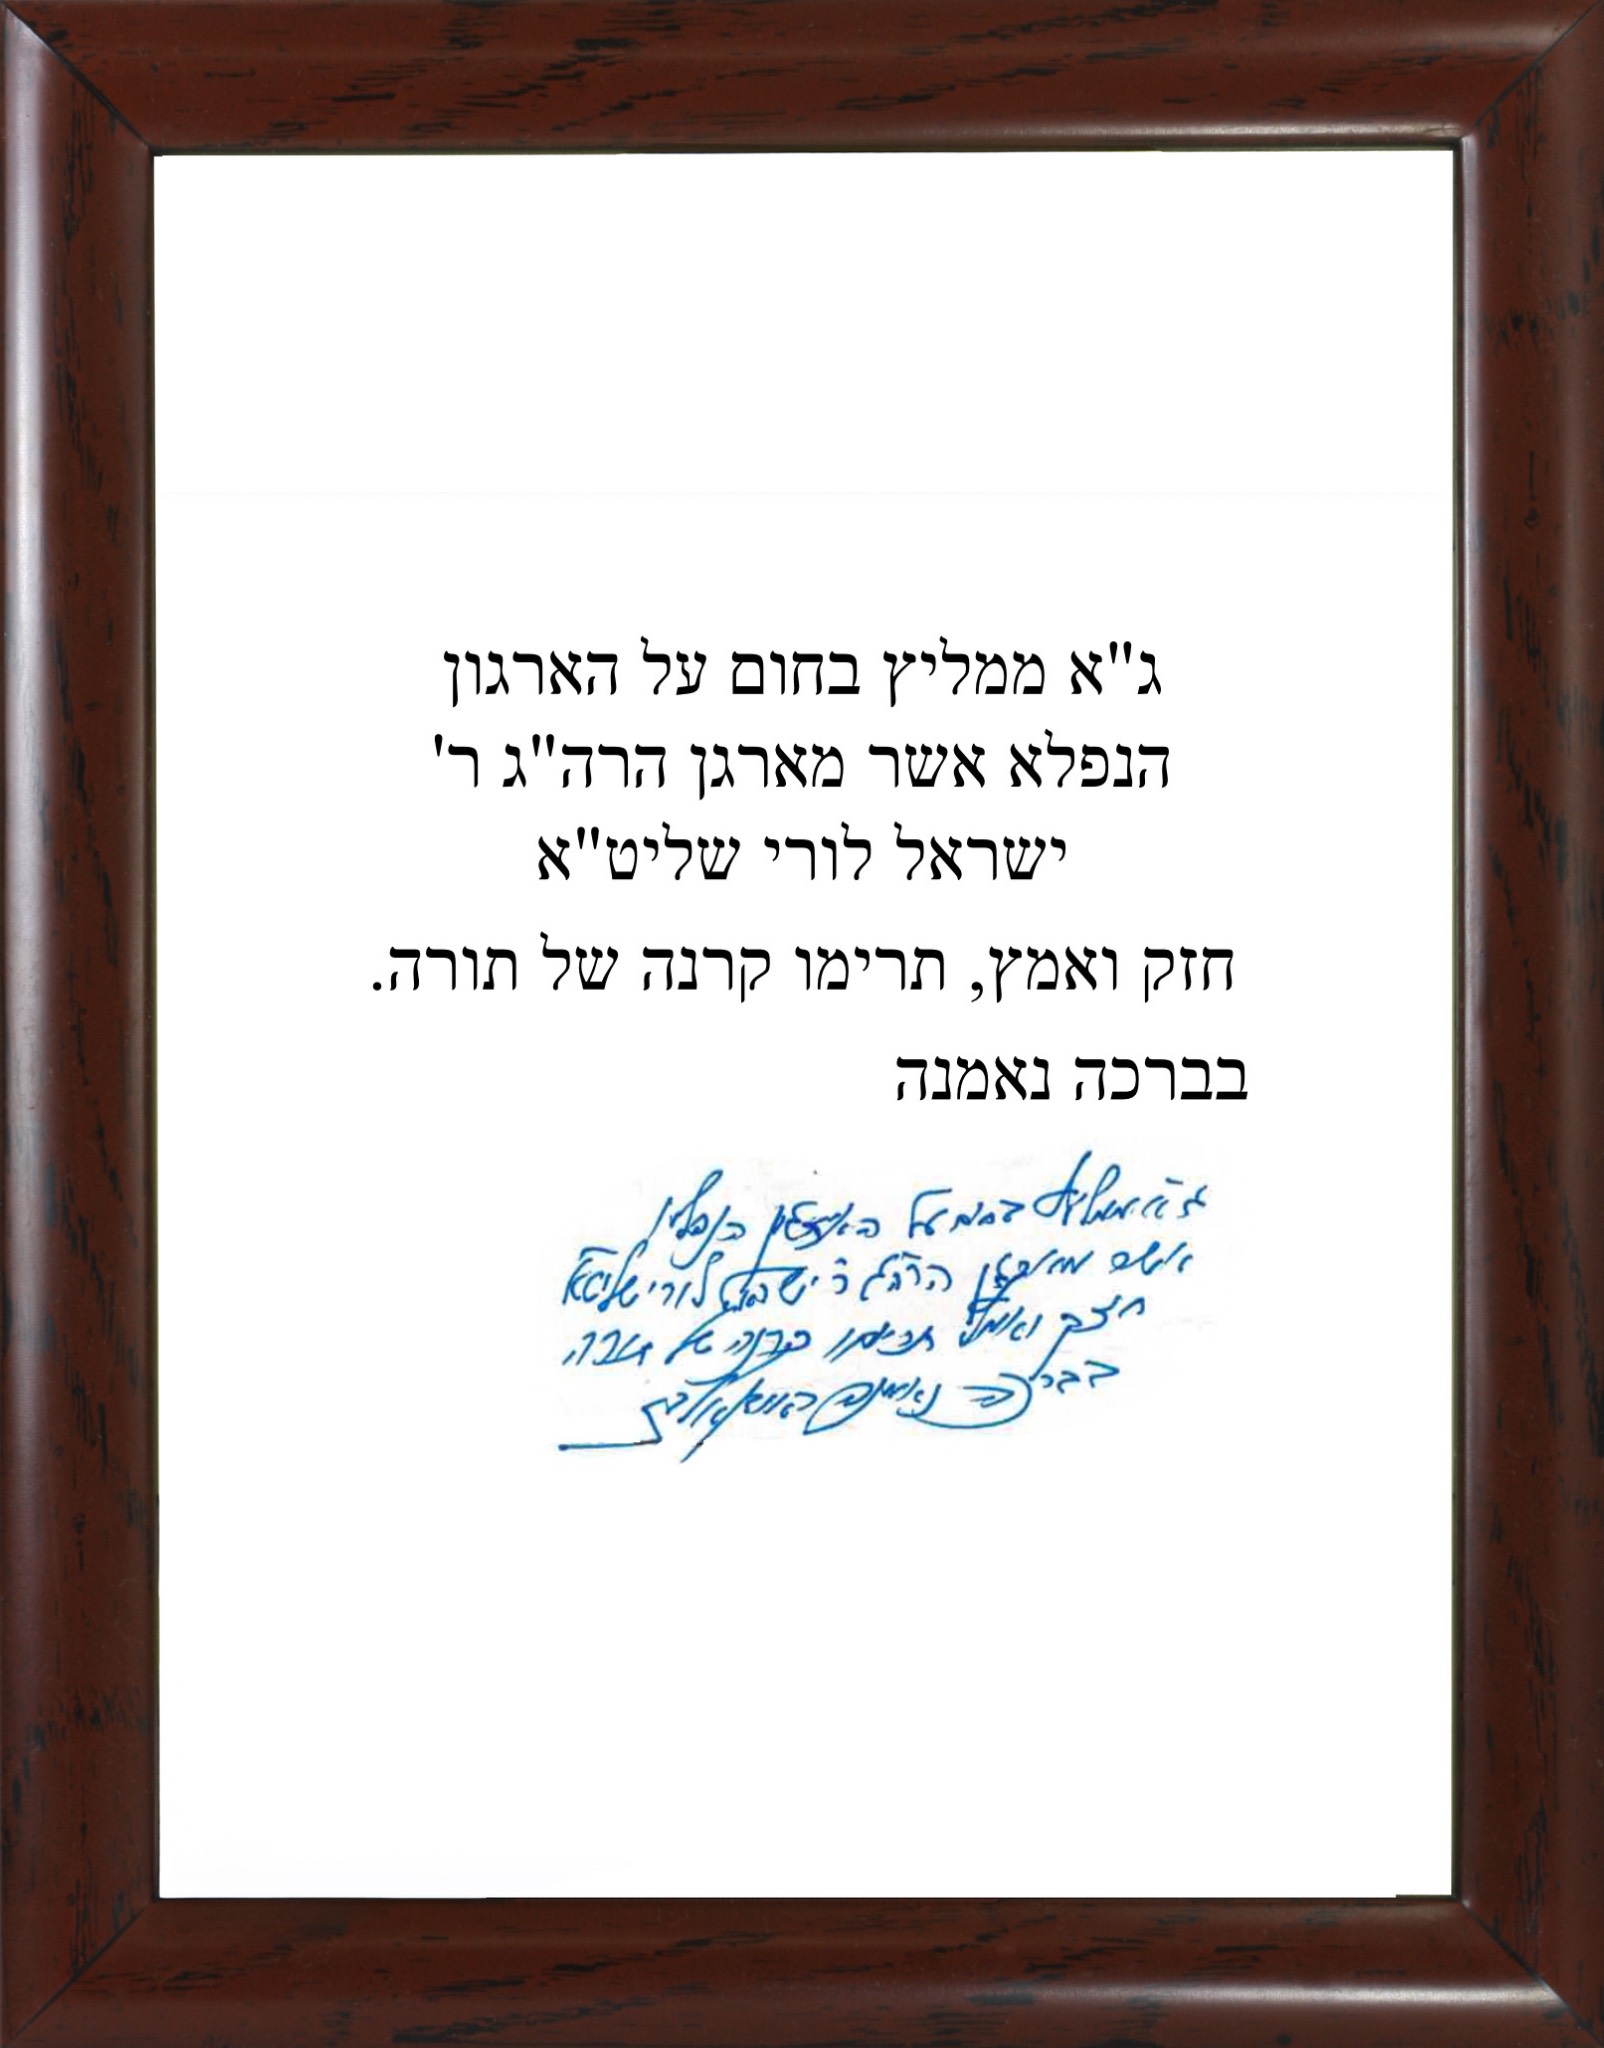 ג"א ממליץ בחום על הארגון
הנפלא אשר מארגן הרה"ג ר'
ישראל לורי שליט"א
חזק ואמץ, תרימו קרנה של תורה.
בברכה נאמנה
ג"א ממליץ בחום על הארגון הנפלא
אשר מארגן הרה"ג ר' ישראל לורי שליט"א
חזק ואמץ תרימו קרנה של תורה
בברכה נאמנה